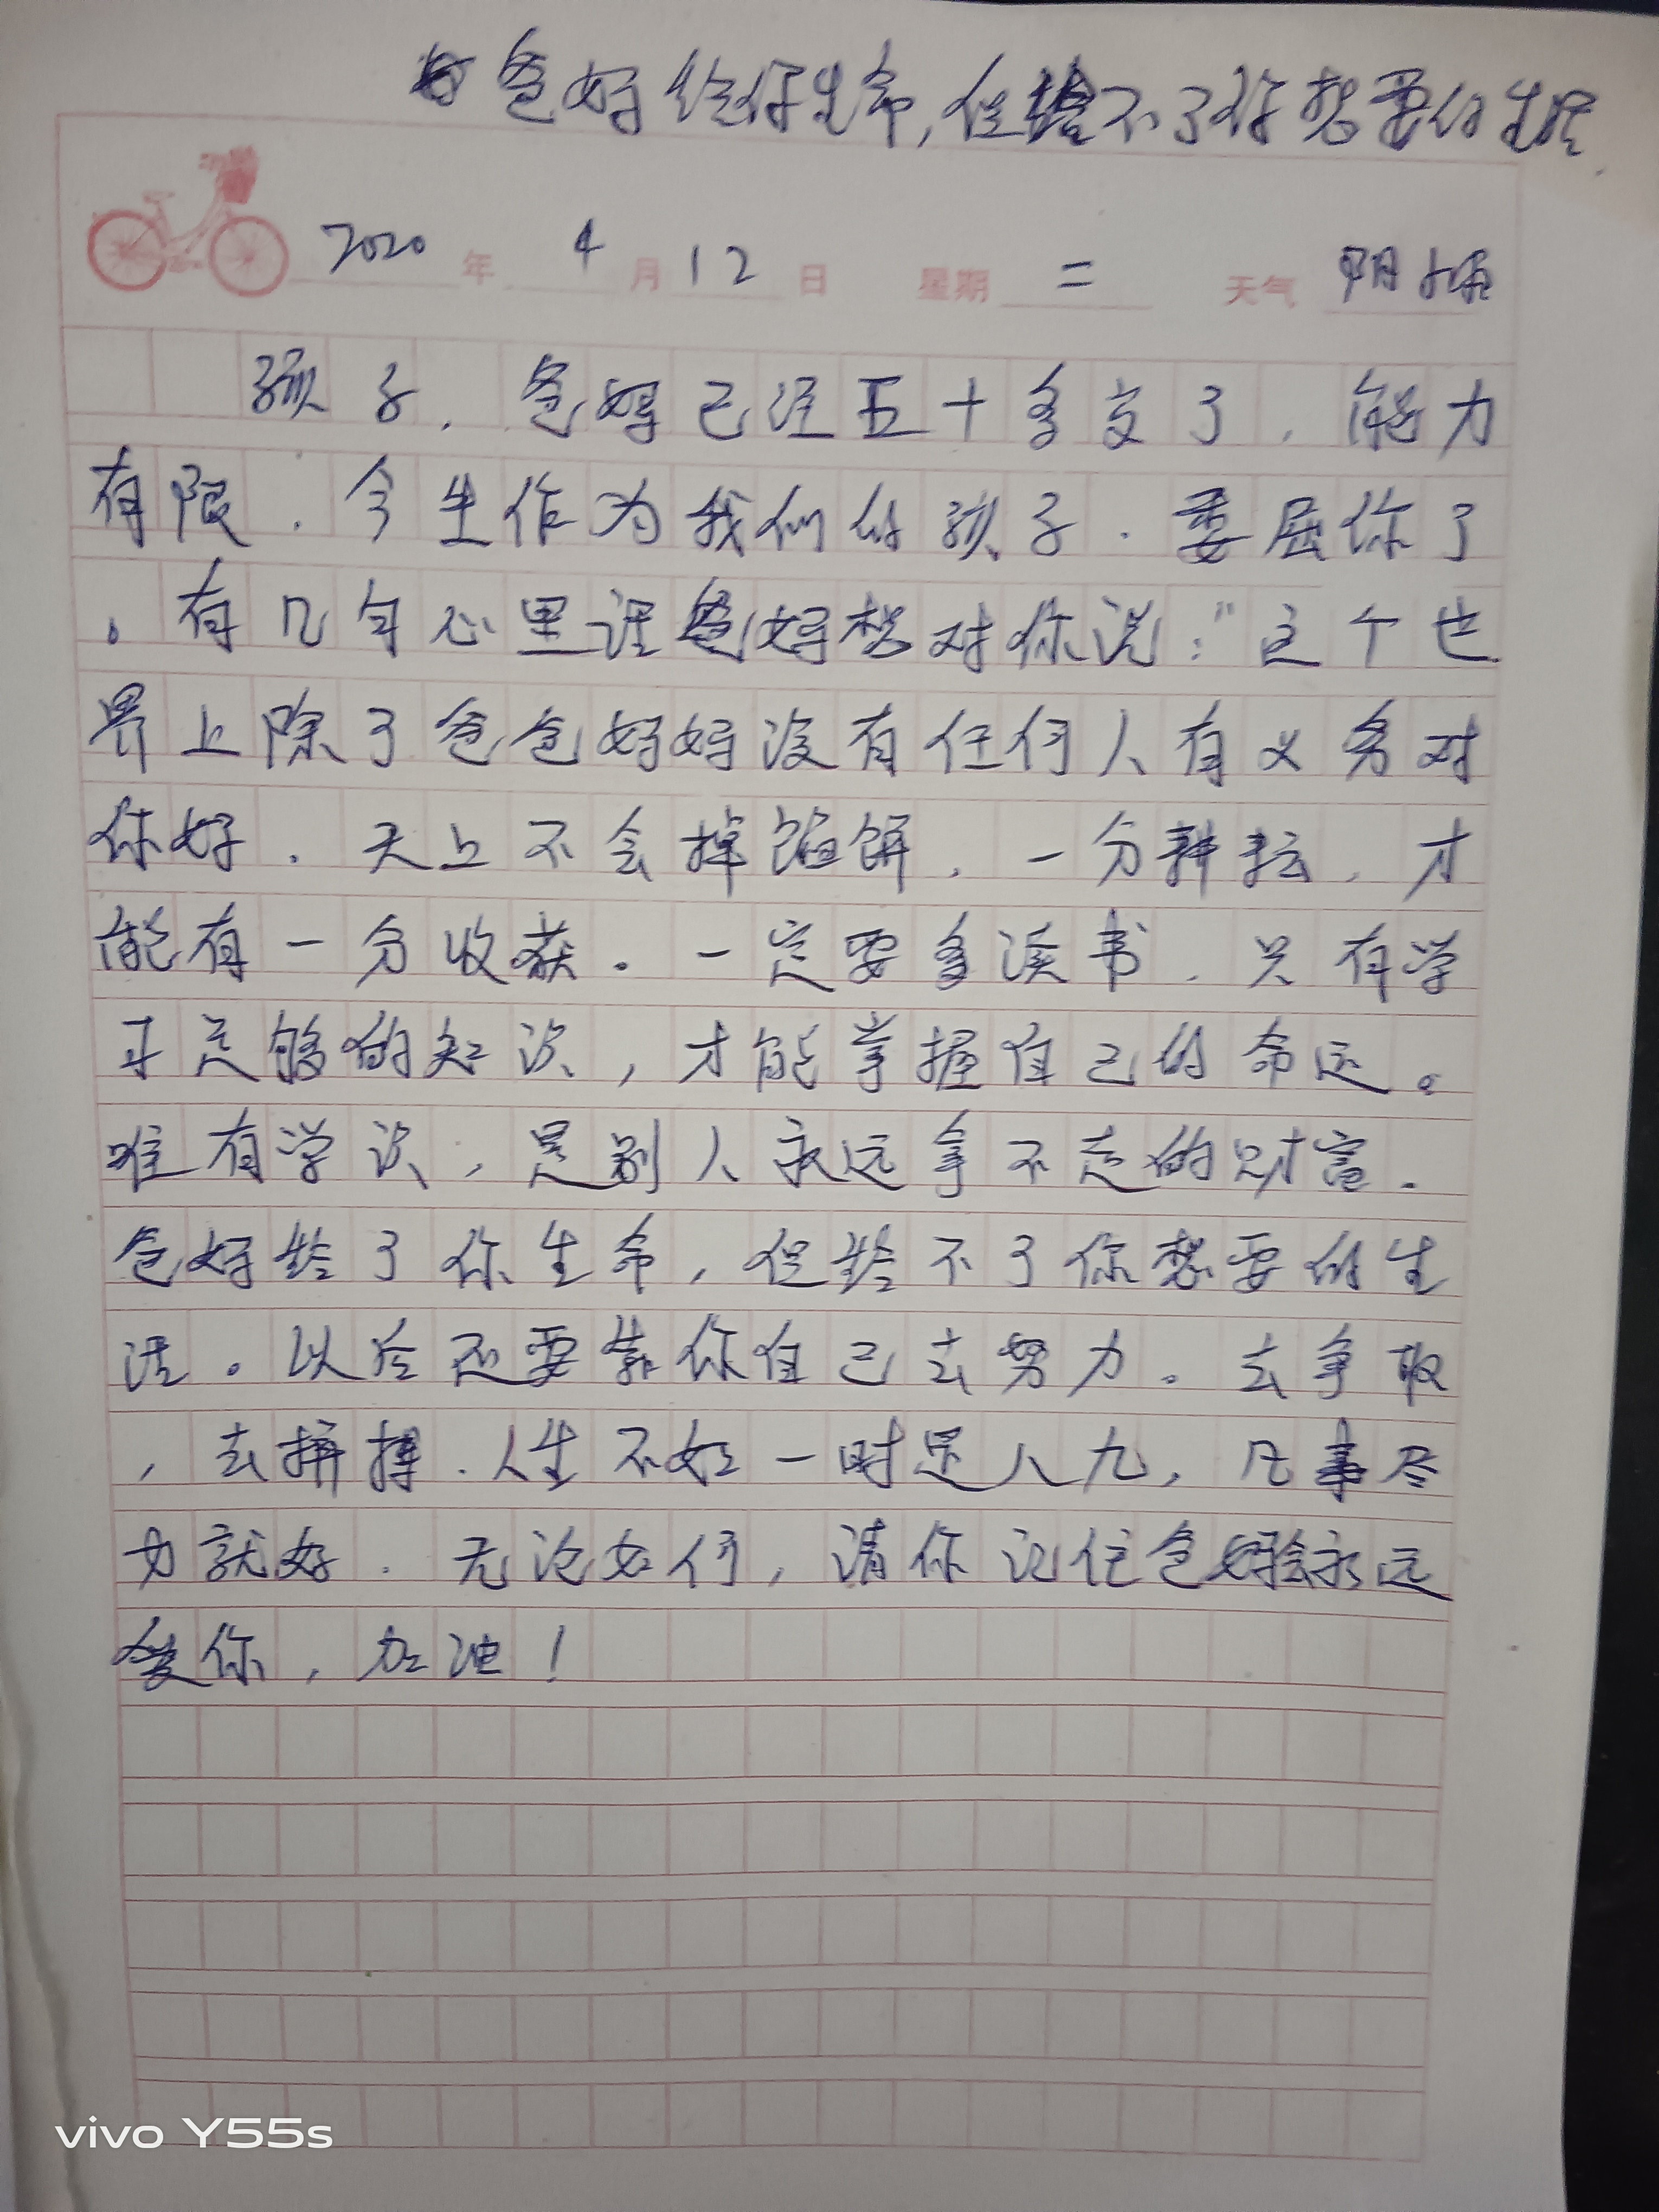 爸妈给你生命,但给不了你想要的生活
2020 年 4 月 12 日 星期 二 天气 阴
孩子.爸妈已经五十多岁了.能力
有限.今生作为我们的孩子.委屈你了
。有几句心里话爸妈想对你说:"这个世
界上除了爸爸妈妈没有任何人有义务对
你好.天上不会掉馅饼.一分耕耘.才
能有一分收获.一定要多读书.只有学
习足够的知识,才能掌握自己的命运。
唯有学识,是别人永远拿不走的财富.
爸妈给了你生命,但给不了你想要的生
活。以后还要靠你自己去努力。去争取
,去拼搏.人生不如一时是八九,凡事尽
力就好.无论如何,请你记住爸妈会永远
爱你,加油!
vivo Y55s